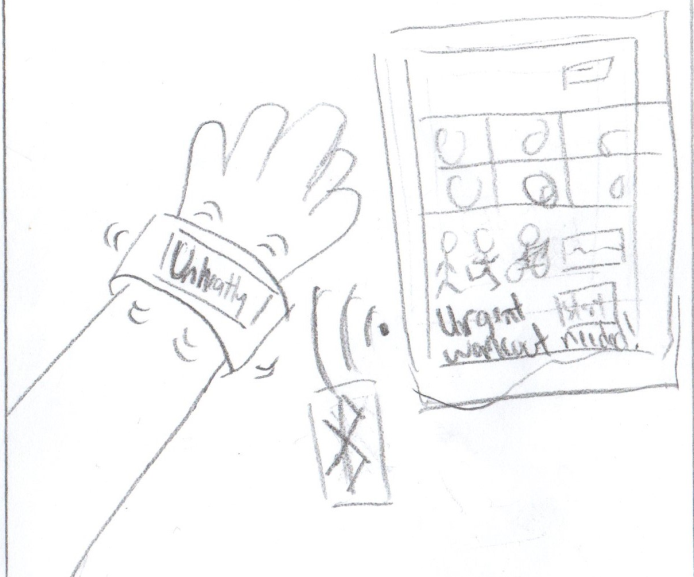 Unhealthy
Start
Urgent
workout needed!